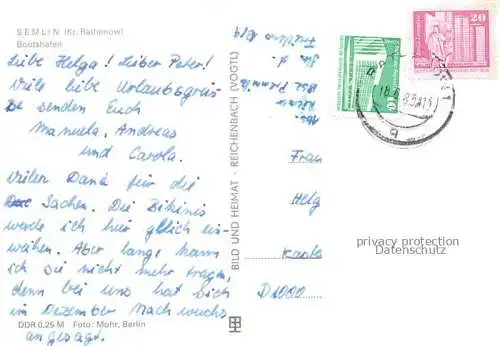 SEMLIN (Kr. Rathenow)
Bootshafen
Liebe Helga! Lieber Peter!
Viele liebe Urlaubsgrüs-
se senden Euch
Manuela, Andreas
und Carola.
Vielen Dank für die
Sachen. Die Bikinis
werde ich hier gleich ein-
weihen. Aber lange kann
ich sie nicht mehr tragen,
denn bei uns hat sich
im Dezember Nachwuchs
angesagt.
DDR 0,25 M Foto: Mohr, Berlin
BILD UND HEIMAT · REICHENBACH (VOGTL)
20
10
Frau
Helg
D 1000
privacy protection
Datenschutz